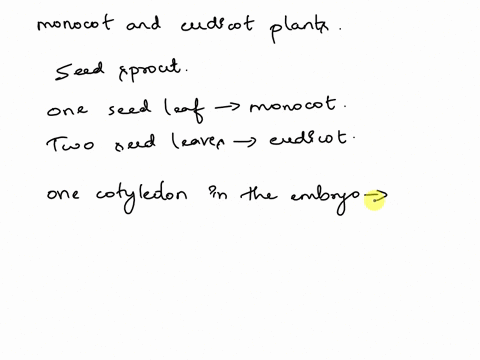 monocot and eudicot plants.
Seed sprout.
one seed leaf → monocot.
Two seed leaves → eudicot.
one cotyledon in the embryo →